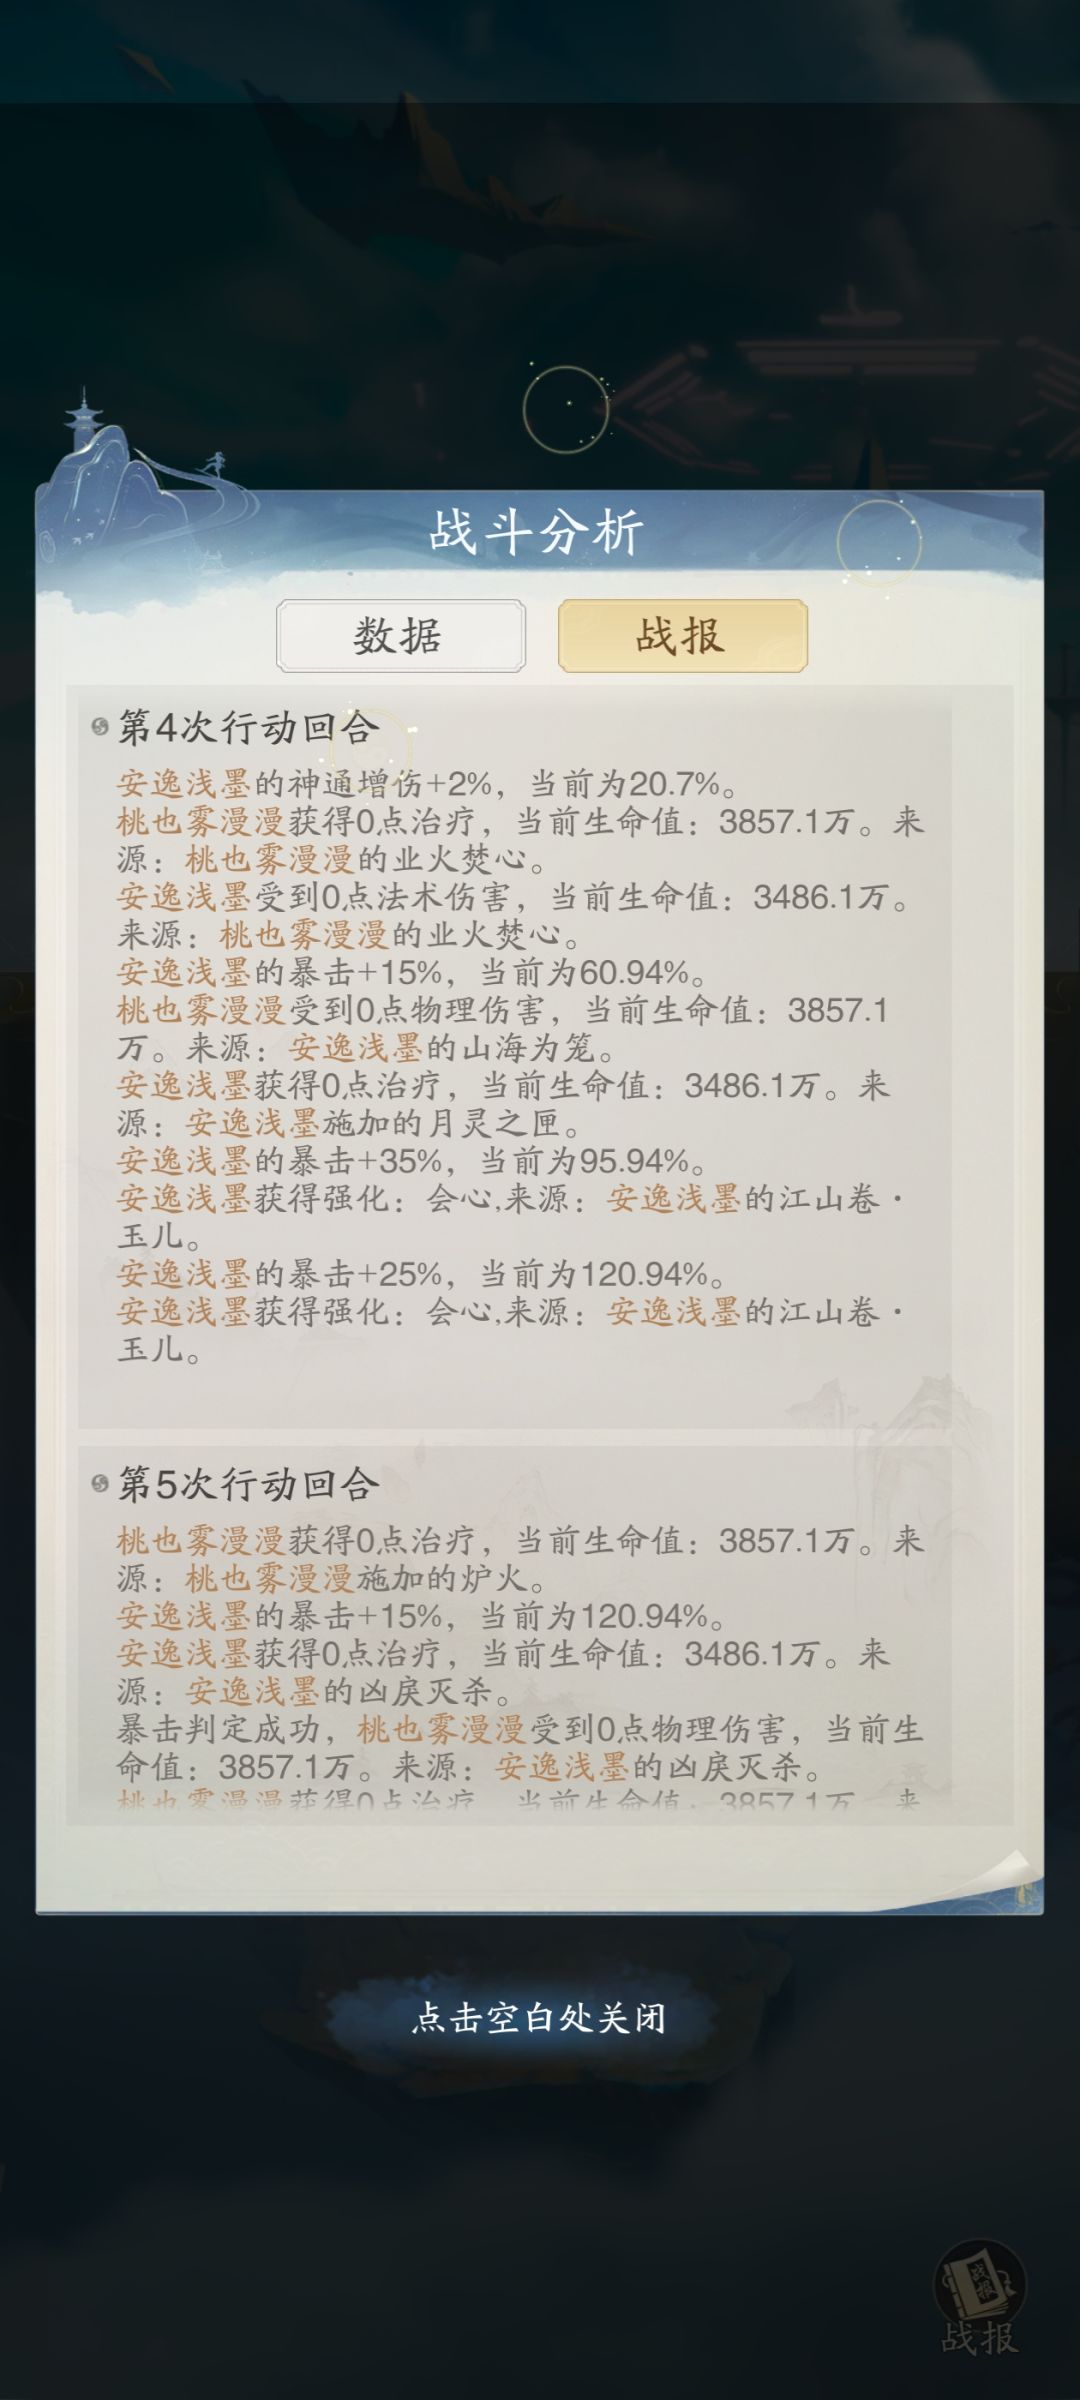 战斗分析
数据
战报
第4次行动回合
安逸浅墨的神通增伤+2%，当前为20.7%。
桃也雾漫漫获得0点治疗，当前生命值：3857.1万。来
源：桃也雾漫漫的业火焚心。
安逸浅墨受到0点法术伤害，当前生命值：3486.1万。
来源：桃也雾漫漫的业火焚心。
安逸浅墨的暴击+15%，当前为60.94%。
桃也雾漫漫受到0点物理伤害，当前生命值：3857.1
万。来源：安逸浅墨的山海为笼。
安逸浅墨获得0点治疗，当前生命值：3486.1万。来
源：安逸浅墨施加的月灵之匣。
安逸浅墨的暴击+35%，当前为95.94%。
安逸浅墨获得强化：会心,来源：安逸浅墨的江山卷·
玉儿。
安逸浅墨的暴击+25%，当前为120.94%。
安逸浅墨获得强化：会心,来源：安逸浅墨的江山卷·
玉儿。
第5次行动回合
桃也雾漫漫获得0点治疗，当前生命值：3857.1万。来
源：桃也雾漫漫施加的炉火。
安逸浅墨的暴击+15%，当前为120.94%。
安逸浅墨获得0点治疗，当前生命值：3486.1万。来
源：安逸浅墨的凶戾灭杀。
暴击判定成功，桃也雾漫漫受到0点物理伤害，当前生
命值：3857.1万。来源：安逸浅墨的凶戾灭杀。
桃也雾漫漫获得0点治疗，当前生命值：3857.1万。来
点击空白处关闭
战报
战报